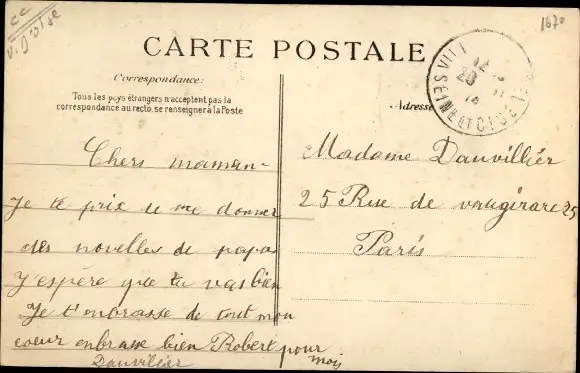 CC
1670
CARTE POSTALE
Correspondance:
Tous les pays étrangers n'acceptent pas la
correspondance au recto, se renseigner à la Poste
Adresse
SEINE ET OISE
Chers maman-
Je te prix de me donner
des novelles de papa
J'espère que tu vas bien
Je t'mbrasse de tout mon
coeur enbrasse bien Robert pour
mois
Dauvillier
Madame Dauvillier
25 Rue de vaugirare 25
Paris